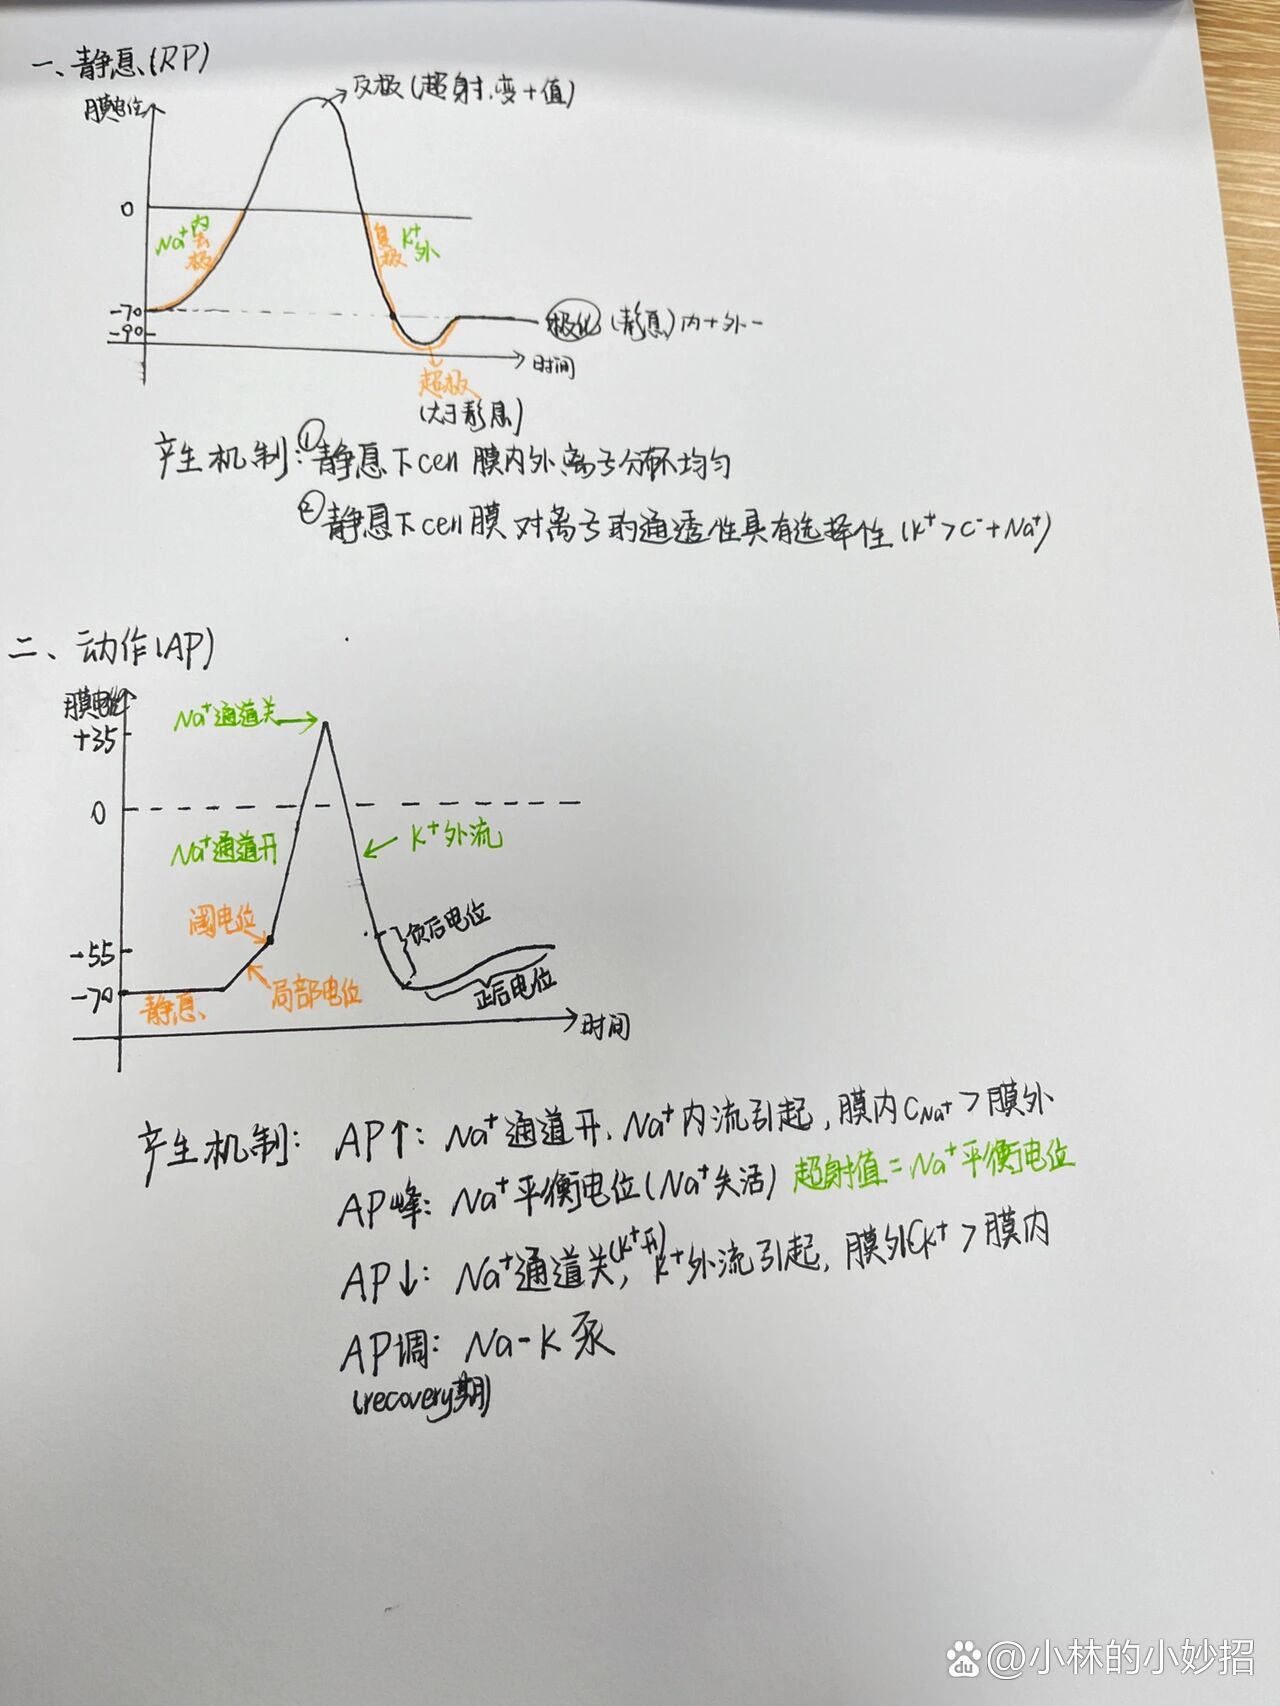 一、静息(RP)
膜电位
反极(超射,变+值)
0
Na⁺内
去极
复极
K⁺外
-70
-90
极化(静息)内+外-
时间
超极
(大于静息)
产生机制:①静息下cell膜内外离子分布不均匀
②静息下cell膜对离子的通透性具有选择性(K⁺>Cl⁻+Na⁺)
二、动作(AP)
膜电位
+35
Na⁺通道关
0
Na⁺通道开
K⁺外流
阈电位
负后电位
-55
-70
静息
局部电位
正后电位
时间
产生机制: AP↑: Na⁺通道开,Na⁺内流引起,膜内CNa⁺>膜外
AP峰: Na⁺平衡电位(Na⁺失活) 超射值=Na⁺平衡电位
AP↓: Na⁺通道关(K⁺开),K⁺外流引起,膜外CK⁺>膜内
AP调: Na-K泵
(recovery期)
Baidu @小林的小妙招